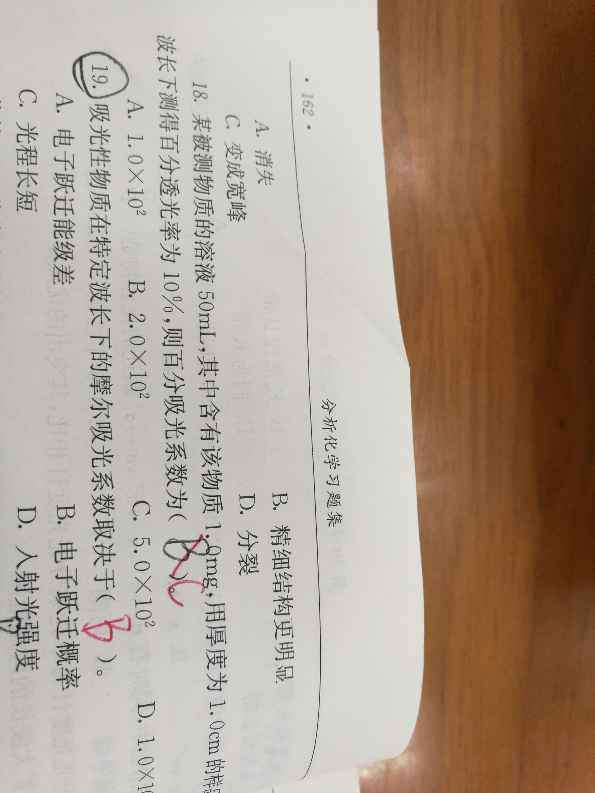 · 162 ·
分析化学习题集
A. 消失 B. 精细结构更明显
C. 变成宽峰 D. 分裂
18. 某被测物质的溶液 50mL,其中含有该物质 1.0mg,用厚度为 1.0cm 的样
波长下测得百分透光率为 10%,则百分吸光系数为( B C )。
A. 1.0×10² B. 2.0×10² C. 5.0×10² D. 1.0×10
19. 吸光性物质在特定波长下的摩尔吸光系数取决于( B )。
A. 电子跃迁能级差 B. 电子跃迁概率
C. 光程长短 D. 入射光强度